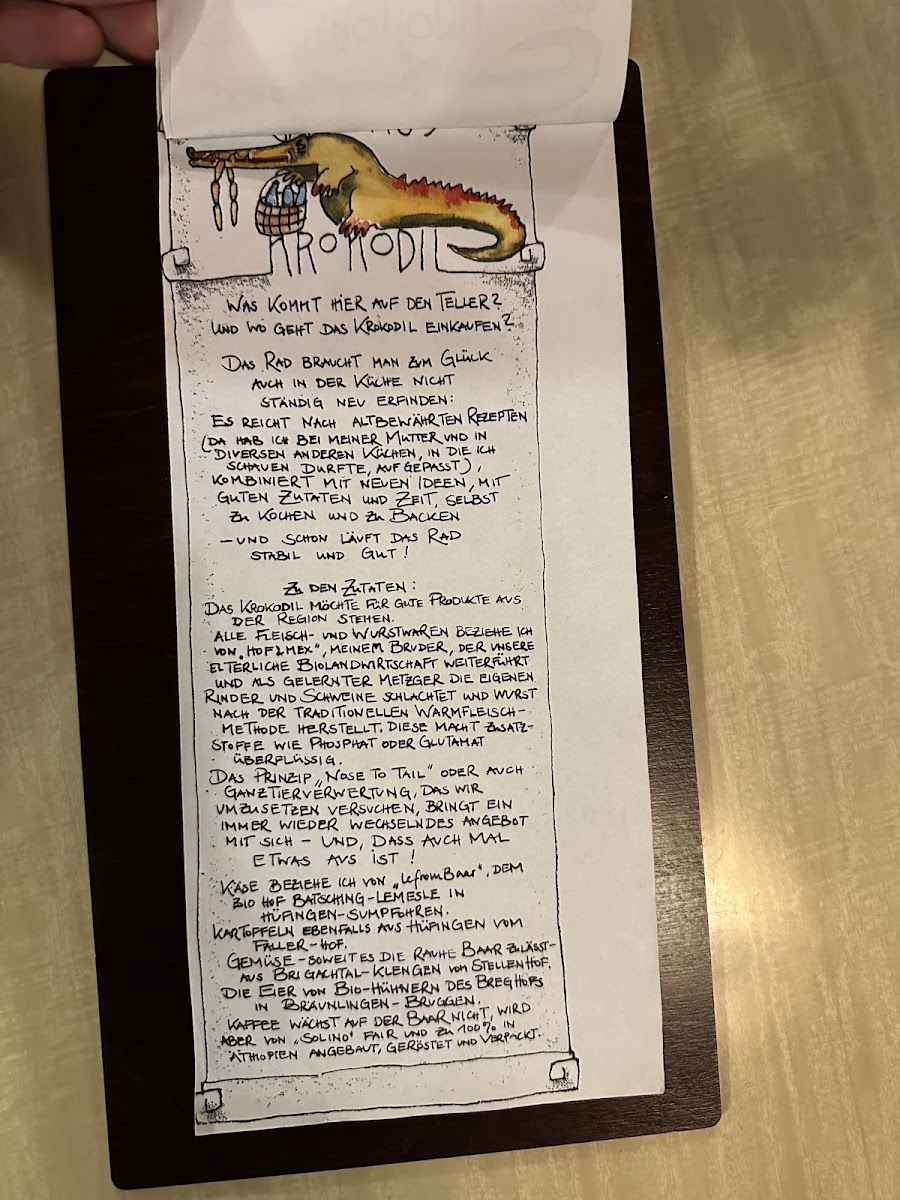 KROKODIL
WAS KOMMT HIER AUF DEN TELLER?
UND WO GEHT DAS KROKODIL EINKAUFEN?
DAS RAD BRAUCHT MAN ZUM GLÜCK
AUCH IN DER KÜCHE NICHT
STÄNDIG NEU ERFINDEN:
ES REICHT NACH ALTBEWÄHRTEN REZEPTEN
(DA HAB ICH BEI MEINER MUTTER UND IN
DIVERSEN ANDEREN KÜCHEN, IN DIE ICH
SCHAUEN DURFTE, AUFGEPASST),
KOMBINIERT MIT NEUEN IDEEN, MIT
GUTEN ZUTATEN UND ZEIT, SELBST
ZU KOCHEN UND ZU BACKEN
– UND SCHON LÄUFT DAS RAD
STABIL UND GUT!
ZU DEN ZUTATEN:
DAS KROKODIL MÖCHTE FÜR GUTE PRODUKTE AUS
DER REGION STEHEN.
ALLE FLEISCH- UND WURSTWAREN BEZIEHE ICH
VON „HOF&MEX", MEINEM BRUDER, DER UNSERE
ELTERLICHE BIOLANDWIRTSCHAFT WEITERFÜHRT
UND ALS GELERNTER METZGER DIE EIGENEN
RINDER UND SCHWEINE SCHLACHTET UND WURST
NACH DER TRADITIONELLEN WARMFLEISCH-
METHODE HERSTELLT. DIESE MACHT ZUSATZ-
STOFFE WIE PHOSPHAT ODER GLUTAMAT
ÜBERFLÜSSIG.
DAS PRINZIP „NOSE TO TAIL" ODER AUCH
GANZTIERVERWERTUNG, DAS WIR
UMZUSETZEN VERSUCHEN, BRINGT EIN
IMMER WIEDER WECHSELNDES ANGEBOT
MIT SICH – UND, DASS AUCH MAL
ETWAS AUS IST!
KÄSE BEZIEHE ICH VON „LefromBaar", DEM
BIO HOF BATSCHING-LEMESLE IN
HÜFINGEN-SUMPFOHREN.
KARTOFFELN EBENFALLS AUS HÜFINGEN VOM
FALLER-HOF.
GEMÜSE – SOWEIT ES DIE RAUHE BAAR ZULÄSST –
AUS BRIGACHTAL-KLENGEN VOM STELLENHOF.
DIE EIER VON BIO-HÜHNERN DES BREGHOFS
IN BRÄUNLINGEN-BRUGGEN.
KAFFEE WÄCHST AUF DER BAAR NICHT, WIRD
ABER VON „SOLINO" FAIR UND ZU 100% IN
ÄTHIOPIEN ANGEBAUT, GERÖSTET UND VERPACKT.